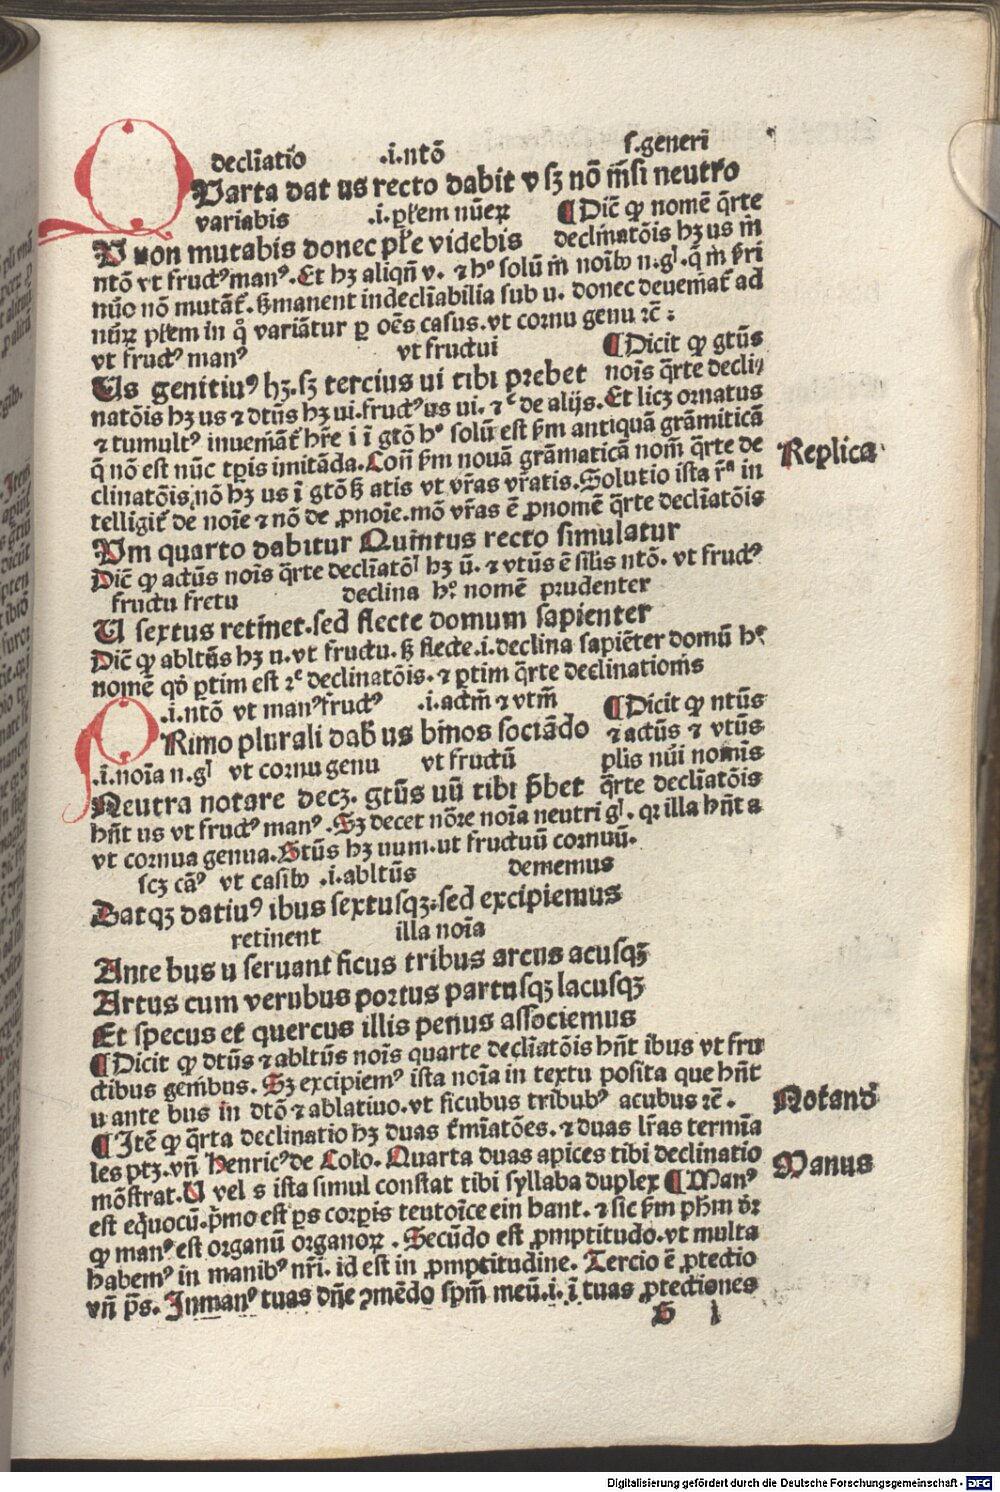 declīatio .i.ntō s.generi
QVarta dat us recto dabit v sꝫ nō m̄si neutro
variabis .i.pl̄em nūeꝝ ¶Dic̄ ꝙ nomē q̄rte
V non mutabis donec pl̄e videbis declīnatōis hꝫ us in
ntō vt fructꝰ manꝰ. Et hꝫ aliqn̄ v. ⁊ hͦ solū in noībꝫ n.gͥ. q̄ in s̄ri
nūo nō mutāt̄. sꝫ manent indeclīabilia sub u. donec deueniat̄ ad
nūꝝ pl̄em in qͦ variātur ꝑ oēs casus. vt cornu genu ⁊c̄ :
vt fructꝰ manꝰ vt fructui ¶Dicit ꝙ gtūs
Us genitiuꝰ hꝫ. sꝫ tercius ui tibi prebet noīs q̄rte decli⸗
natōis hꝫ us ⁊ dtūs hꝫ ui. fructꝰ us ui. ⁊ c̄ de alijs. Et licꝫ ornatus
⁊ tumultꝰ inueniāt̄ hr̄e i ī gtō hͦ solū est s̄m antiquā grāmiticā
q̄ nō est nūc tꝑis imitāda. Con̄ s̄m nouā grāmaticā nom̄ q̄rte de
clinatōis, nō hꝫ us ī gtō sꝫ atis vt vr̄as vr̄atis. Solutio ista r̄ᵃ in
telligit̄ de noīe ⁊ nō de ꝓnoīe. mō vr̄as ē ꝓnomē q̄rte declīatōis
Replica
Vm quarto dabitur Quintus recto simulatur
Dic̄ ꝙ actūs noīs q̄rte declīatōī hꝫ ū. ⁊ vtūs ē silīs ntō. vt fructꝰ
fructu fretu declina hͦ. nomē prudenter
U sextus retinet. sed flecte domum sapienter
Dic̄ ꝙ abltūs hꝫ u. vt fructu. sꝫ flecte. i. declina sapiēter domū hͦ
nomē qđ ꝑtim est 2ᵉ declinatōis. ⁊ ꝑtim q̄rte declinationis
.i.ntō vt manꝰ fructꝰ .i.actm̄ ⁊ vtm̄ ¶Dicit ꝙ ntūs
PRimo plurali dabꝫ us binos sociādo ⁊ actūs ⁊ vtūs
.i.noīa n.gͥ vt cornu genu vt fructū plis nūi nominis
Neutra notare decꝫ. gtūs uū tibi p̄bet q̄rte declīatōis
hn̄t us vt fructꝰ manꝰ. Sꝫ decet nōre noīa neutri gͥ. qr illa hn̄t a
vt cornua genua. Gtūs hꝫ uum. ut fructuū cornuū.
scꝫ cāꝰ vt casibꝫ .i.abltūs dememus
Datqꝫ datiuꝰ ibus sextusqꝫ. sed excipiemus
retinent illa noīa
Ante bus u seruant ficus tribus arcus acusqꝫ
Artus cum verubus portus partusqꝫ lacusqꝫ
Et specus et quercus illis penus associemus
¶Dicit ꝙ dtūs ⁊ abltūs noīs quarte declīatōis hn̄t ibus vt fru
ctibus genibus. Sꝫ excipiemꝰ ista noīa in textu posita que hn̄t
u ante bus in dtō ⁊ ablatiuo. vt ficubus tribubꝰ acubus ⁊c̄.
Notand̄
¶Itē ꝙ q̄rta declinatio hꝫ duas t̄mīatōes. ⁊ duas lr̄as termīa
les ptꝫ. vn̄ Henricꝰ de Colo. Quarta duas apices tibi declinatio
mōstrat. U vel s ista simul constat tibi syllaba duplex ¶Manꝰ
Manus
est eq̄uocū. p̄mo est ꝑs corꝑis teutoīce ein hant. ⁊ sic s̄m ph̄m dr̄
ꝙ manꝰ est organū organoꝝ. Secūdo est ꝓmptitudo. vt multa
habemꝰ in manibꝰ nr̄i. id est in ꝓmptitudine. Tercio ē ꝓtectio
vn̄ p̄s. In manꝰ tuas dn̄e ꝯmēdo spm̄ meū. i. ī tuas ꝓtectiones
G 1
Digitalisierung gefördert durch die Deutsche Forschungsgemeinschaft - DFG